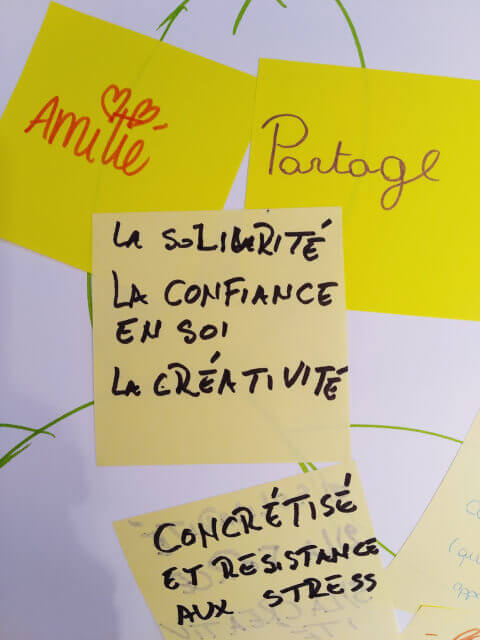 Amitié
Partage
LA SOLIDARITÉ
LA CONFIANCE
EN SOI
LA CRÉATIVITÉ
CONCRÉTISÉ
ET RESISTANCE
AUX STRESS